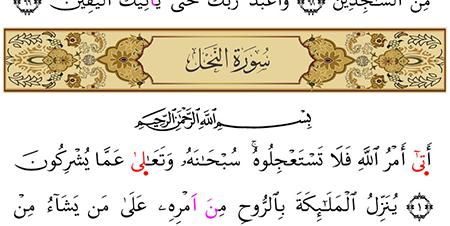 مِّنَ ٱلسَّٰجِدِينَ ۝٩٨ وَٱعۡبُدۡ رَبَّكَ حَتَّىٰ يَاتِيَكَ ٱلۡيَقِينُ ۝٩٩
سُورَةُ النَّحۡلِ
بِسۡمِ ٱللَّهِ ٱلرَّحۡمَٰنِ ٱلرَّحِيمِ
أَتىٰٓ أَمۡرُ ٱللَّهِ فَلَا تَسۡتَعۡجِلُوهُۚ سُبۡحَٰنَهُۥ وَتَعَٰلىٰ عَمَّا يُشۡرِكُونَ
۝١ يُنَزِّلُ ٱلۡمَلَٰٓئِكَةَ بِٱلرُّوحِ مِنَ اَمۡرِهِۦ عَلَىٰ مَن يَشَآءُ مِنۡ